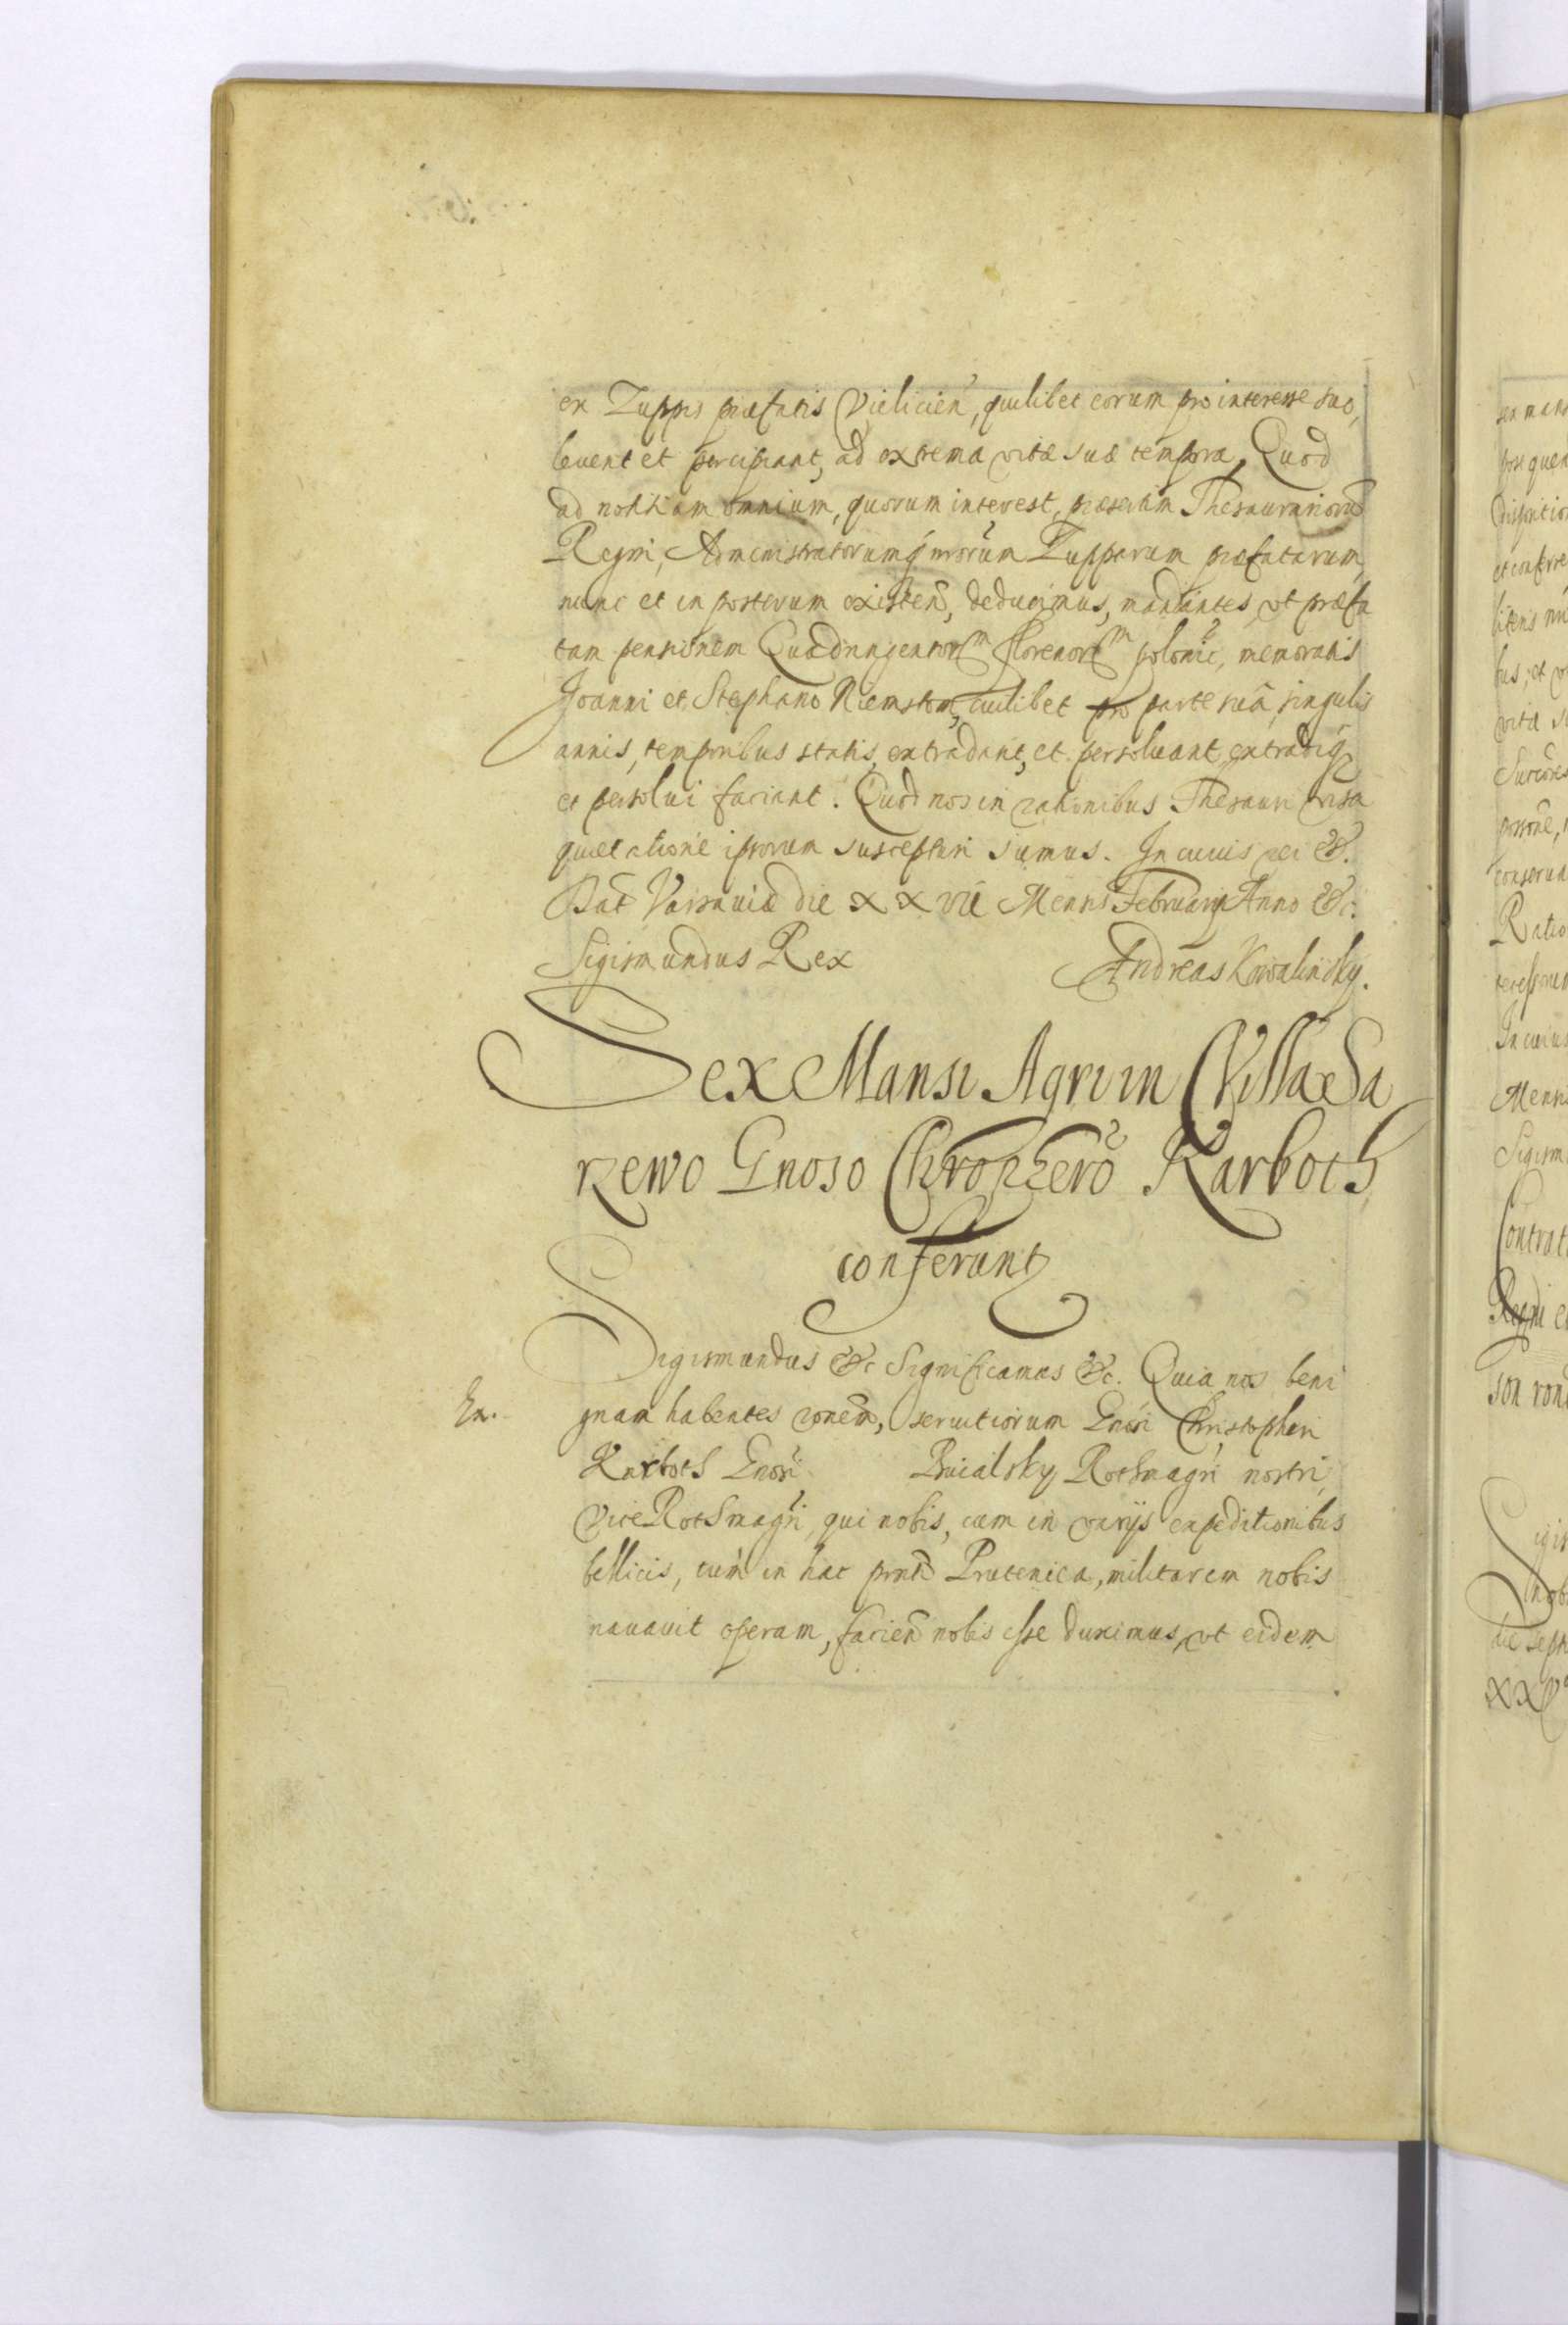 ex Zuppis præfatis Vielicieñ, quilibet eorum pro interesse suo,
levent et percipiant, ad extrema vitæ suæ tempora, Quod
ad notitiam omnium, quorum interest, præsertim Thesaurarioru
Regni, Administratorumq nrorum Zupparum præfatarum,
nunc et in posterum existeñ, deducimus, mandantes, vt præfa
tam pensionem Quadringentorm florenorm polonic, memoratis
Joanni et Stephano Niemstom, cuilibet pro parte suâ, singulis
annis, temporibus statis, extradant, et persoluant, extradiq
et persolui faciant. Quod nos in rationibus Thesauri visa
quietatione ipsorum suscepturi sumus. In cuius rei &.
Dat Varsauiæ die XX vii Mensis February Anno &c.
Sigismundus Rex
Andreas Kowalinsky.
Sex Mansi Agri in Villa Sa
rzewo Gnoso Chrophero Karboth
conferunt
Sigismundus &c Significamus &c. Quia nos beni
Ex.
gnam habentes ronem, seruitiorum Gnosi Christopheri
Karboth Gnosi Rotmagri nostri,
Vice Rotmagri, qui nobis, cum in varijs expeditionibus
bellicis, tum in hac prnti Prutenica, militarem nobis
nauauit operam, facien nobis esse duximus, vt eidem